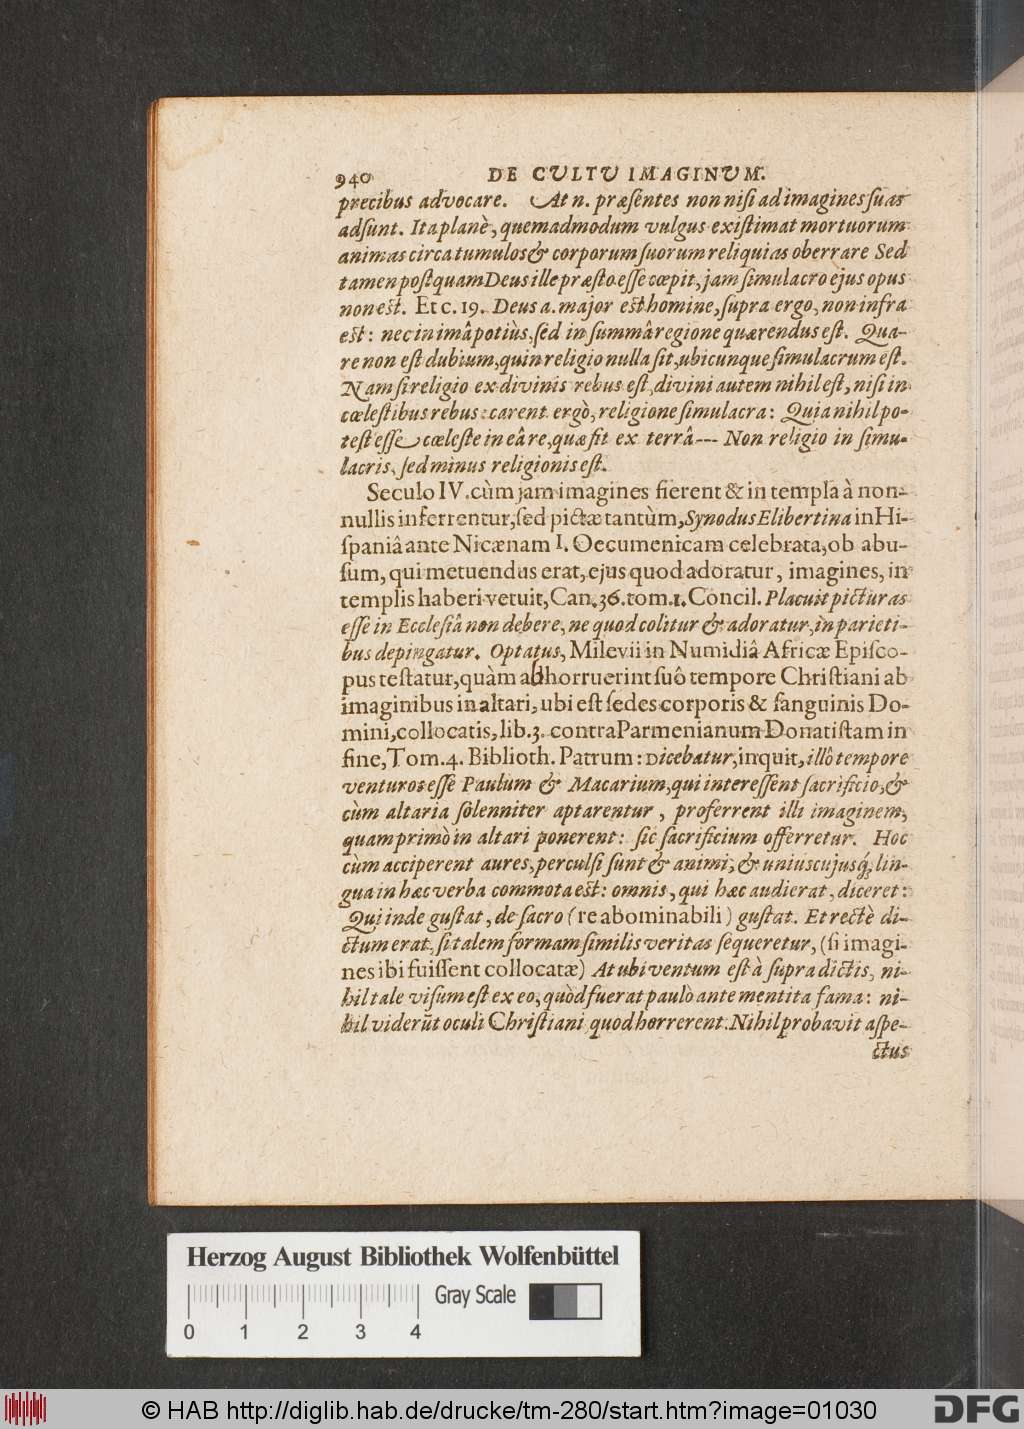 940 DE CULTU IMAGINUM.
precibus advocare. At n. præsentes non nisi ad imagines suas
adsunt. Ita planè, quemadmodum vulgus existimat mortuorum
animas circa tumulos & corporum suorum reliquias oberrare Sed
tamen postquam Deus ille præsto esse cœpit, jam simulacro ejus opus
non est. Et c. 19. Deus a. major est homine, supra ergo, non infra
est: nec in imâ potiùs, sed in summâ regione quærendus est. Qua-
re non est dubium, quin religio nulla sit, ubicunque simulacrum est.
Nam si religio ex divinis rebus est, divini autem nihil est, nisi in
cœlestibus rebus: carent ergò, religione simulacra: Quia nihil po-
test esse cœleste in eâ re, quæ fit ex terrâ--- Non religio in simu-
lacris, sed minus religionis est.
Seculo IV. cùm jam imagines fierent & in templa à non-
nullis inferrentur, sed pictæ tantùm, Synodus Elibertina in Hi-
spaniâ ante Nicænam I. Oecumenicam celebrata, ob abu-
sum, qui metuendus erat, ejus quod adoratur, imagines, in
templis haberi vetuit, Can. 36. tom. 1. Concil. Placuit picturas
esse in Ecclesiâ non debere, ne quod colitur & adoratur, in parieti-
bus depingatur. Optatus, Milevii in Numidiâ Africæ Episco-
pus testatur, quàm abhorruerint suô tempore Christiani ab
imaginibus in altari, ubi est sedes corporis & sanguinis Do-
mini, collocatis, lib. 3. contra Parmenianum Donatistam in
fine, Tom. 4. Biblioth. Patrum: Dicebatur, inquit, illô tempore
venturos esse Paulum & Macarium, qui interessent sacrificio, &
cùm altaria solenniter aptarentur, proferrent illi imaginem,
quam primò in altari ponerent: sic sacrificium offerretur. Hoc
cùm acciperent aures, perculsi sunt & animi, & uniuscujusq́; lin-
gua in hæc verba commota est: omnis, qui hæc audierat, diceret:
Qui inde gustat, de sacro (re abominabili) gustat. Et rectè di-
ctum erat, si talem formam similis veritas sequeretur, (si imagi-
nes ibi fuissent collocatæ) At ubi ventum est à supra dictis, ni-
hil tale visum est ex eo, quòd fuerat paulò ante mentita fama: ni-
hil viderūt oculi Christiani quod horrerent. Nihil probavit aspe-
ctus
Herzog August Bibliothek Wolfenbüttel
Gray Scale
0 1 2 3 4
© HAB http://diglib.hab.de/drucke/tm-280/start.htm?image=01030
DFG